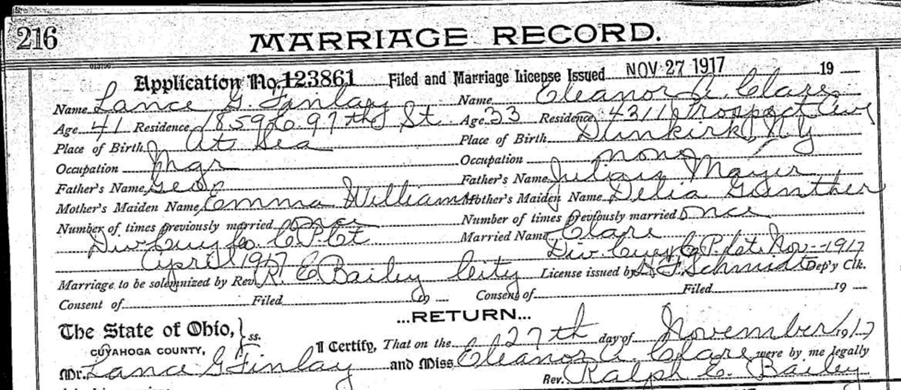 216
MARRIAGE RECORD.
Application No. 123861 Filed and Marriage License Issued NOV 27 1917 19
Name Lance G. Finlay Name Eleanor A. Clare
Age 41 Residence 1859 E. 97th St. Age 33 Residence 4311 Prospect Ave
Place of Birth At Sea Place of Birth Dunkirk, N.Y
Occupation Mgr Occupation none
Father's Name Geo Father's Name Mayer
Mother's Maiden Name, Emma Williams Mother's Maiden Name Delia Guenther
Number of times previously married once Number of times previously married once
Div. Cuy Co. C.P. Ct Married Name Clare
April 1917 Div. Cuy Co C.P. Nov 1917
Marriage to be solemnized by Rev. R. E. Bailey City License issued by Schmidt Dep'y Clk.
Consent of Filed 19 Consent of Filed 19
...RETURN...
The State of Ohio, } ss.
CUYAHOGA COUNTY, I Certify, That on the 27th day of November 1917
Mr. Lance G Finlay and Miss Eleanor A. Clare were by me legally
Rev. Ralph E. Bailey